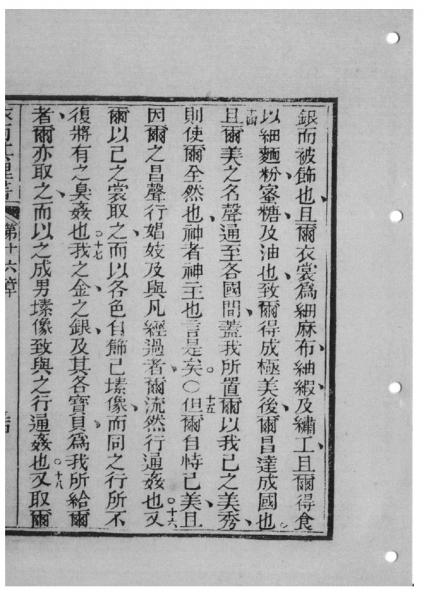 銀而被飾也且爾衣裳為細麻布紬緞及繡工且爾得食
以細麵粉蜜糖及油也致爾得成極美後爾昌達成國也
十四且爾美之名聲通至各國間蓋我所置爾以我己之美秀
則使爾全然也神者神主也言是矣〇十五但爾自恃己美且
因爾之昌聲行娼妓及與凡經過者爾流然行通姦也〇十六又
爾以己之裳取之而以各色自飾己塐像而同之行所不
復將有之臭姦也〇十七我之金之銀及其各寶貝為我所給爾
者爾亦取之而以之成男塐像致與之行通姦也〇十八又取爾
第十六章